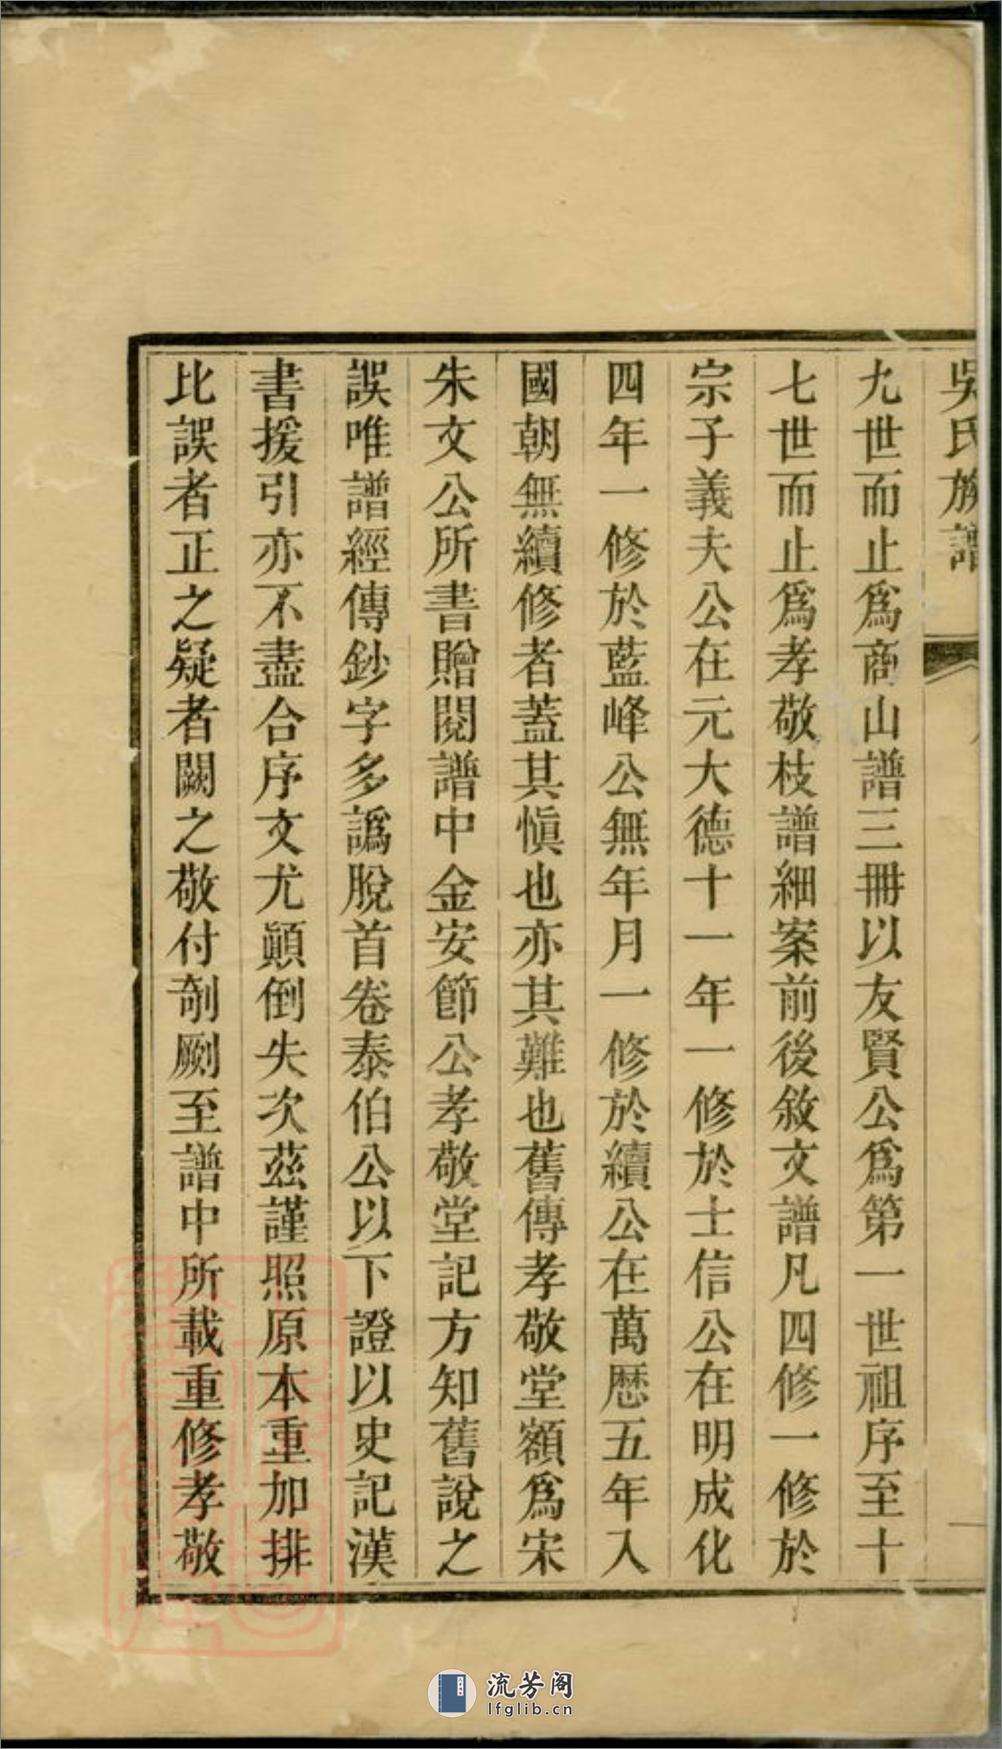 吳氏族譜
九世而止爲商山譜三冊以友賢公爲第一世祖序至十
七世而止爲孝敬枝譜細案前後敘文譜凡四修一修於
宗子義夫公在元大德十一年一修於士信公在明成化
四年一修於藍峰公無年月一修於續公在萬厯五年入
國朝無續修者蓋其愼也亦其難也舊傳孝敬堂額爲宋
朱文公所書贈閱譜中金安節公孝敬堂記方知舊說之
誤唯譜經傳鈔字多譌脫首卷泰伯公以下證以史記漢
書援引亦不盡合序文尤顚倒失次茲謹照原本重加排
比誤者正之疑者闕之敬付剞劂至譜中所載重修孝敬
流芳阁
lfglib.cn